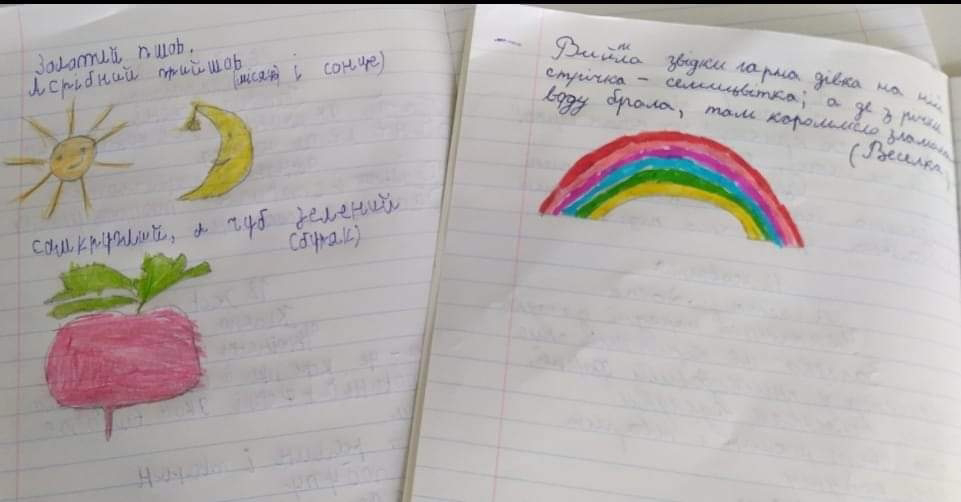 Золотий пшов.
А срібний прийшов
(місяць і сонце)
сам круглий, а чуб зелений
(буряк)
Вийшла звідки гарна дівка на ній
стрічка - семицвітка; а де з річки
воду брала, там коромисло зламала
(Веселка)